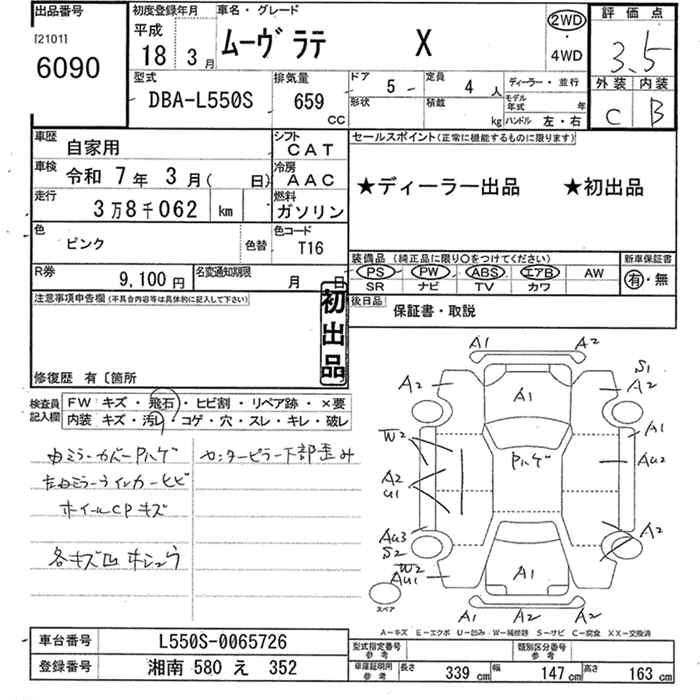 出品番号
[2101]
6090
初度登録年月
平成
18 3月
車名・グレード
ムーヴラテ X
2WD
・
4WD
評価点
3.5
外装 内装
C B
型式
DBA-L550S
排気量
659
CC
ドア 5 定員 4人
形状 積載 kg
ディーラー・並行
モデル年式 年
ハンドル 左・右
車歴 自家用
シフト CAT
車検 令和 7年 3月( 日)
冷房 AAC
走行 3万8千062 km
燃料 ガソリン
色 ピンク 色替
色コード T16
R券 9,100円
名変通知期限 月 日
セールスポイント(正常に機能するものに限ります)
★ディーラー出品 ★初出品
装備品(純正品に限り○をつけてください)
新車保証書
PS PW ABS エアB AW
SR ナビ TV カワ
有・無
後日品 保証書・取説
注意事項申告欄(不具合内容等は具体的に記入して下さい)
初出品
修復歴 有〔箇所
検査員記入欄
FW キズ・飛石・ヒビ割・リペア跡・×要
内装 キズ・汚レ・コゲ・穴・スレ・キレ・破レ
センターピラー下部歪み
ホイールCPキズ
A1 A2
A2 A1 S1
A2
W2 A1
Pハゲ AU2
A2
U1
AU3 A2
S2
W2
AU1 A1
スペア
A1 A2 A2
A-キズ E-エクボ U-凹み・W-補修跡 S-サビ C-腐食 XX-交換済
車台番号 L550S-0065726
登録番号 湘南 580 え 352
型式指定番号
参考
類別区分番号
参考
車庫証明用
参考
長さ 339 cm 幅 147 cm 高さ 163 cm